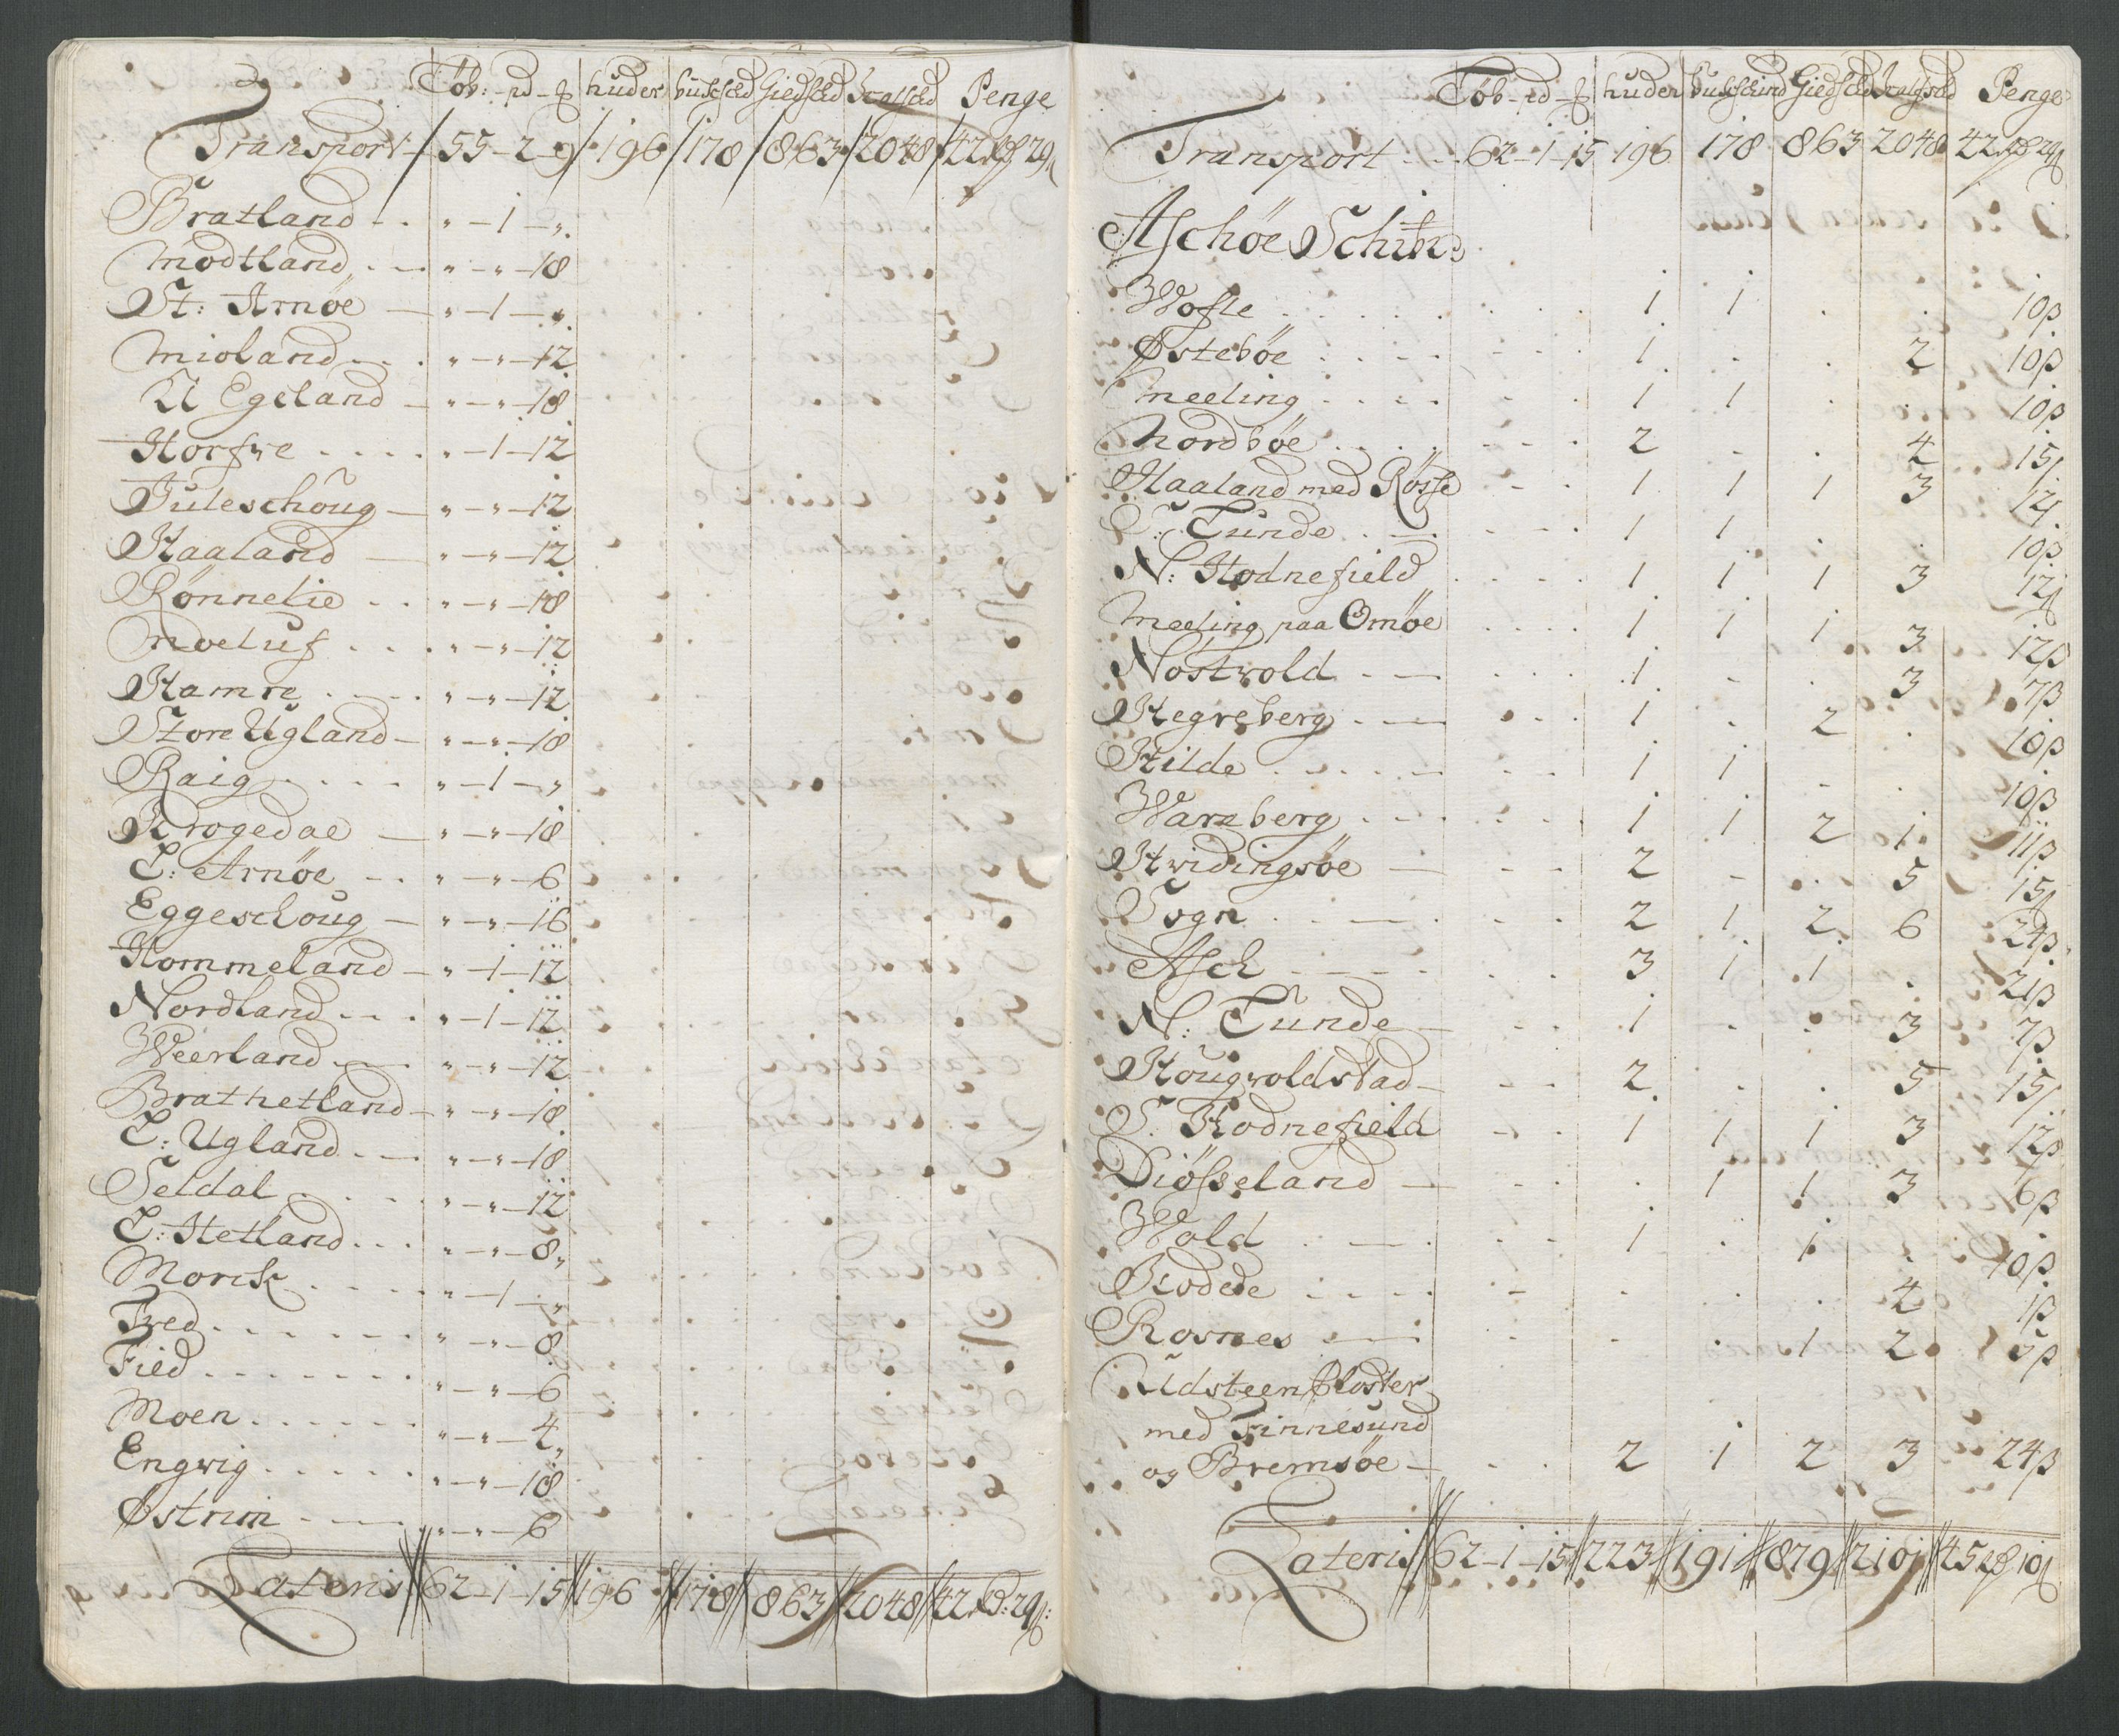 Tób: - pd - huder buchsed Giedsed Kalfsed Penge
Transport - 55 - 2 - 9 196 178 863 2048 42 29
Bratland - - " - 1 - "
Modtland - - " - " - 18
St: Arnöe - " - 1 - "
Mioland - - " - " - 12
U Egeland - " - " - 18
Horfve . . . . " - 1 - 12
Juleschoug - " - " - 12
Haaland - " - " - 12
Rönnelie - - " - " - 18
Moeluf . . . " - " - 12
Hamre . - . " - " - 12
Store Ugland - " - " - 18
Raig . . . . " - 1 - "
Krogedae - " - " - 18
L: Arnöe - - " - " - 6
Eggeschoug - " - " - 16
Hommeland - " - 1 - 12
Nordland - - . " - 1 - 12
Weerland - " - " - 12
Brathetland - " - " - 18
L: Ugland - - " - " - 18
Seldal . . . " - " - 12
L: Hetland . . . " - " - 8
Morck . . . . " - 1 - "
Tved . . . . . . " - " - 8
Field . . . . . . " - " - 6
Moen . . . . . . " - " - 4
Engvig . . . . . " - " - 18
Østrim - - - " - " - 6
Lateris 62 - 1 - 15 196 178 863 2048 42 : 29
Tób - pd - huder buchschind Giedsed Kalfsed Penge
Transport . - 62 - 1 - 15 196 178 863 2048 42 29
Aschöe Schibr:
Wofle . . . . . 1 1 . . 10β
Östeböe . . . - 1 . . 2 10β
Meeling . . . . 1 1 . . 10β
Nordböe . . . . 2 . . 4 15β
Haaland med Rösse - - 1 1 1 3 12β
S: Tunde . . - 1 1 . . 10β
N: Hodnefield . . . . 1 1 1 3 12β
Meeling paa Omöe . . . . 1 1 1 3 12β
Nostvold . - . . . 1 . . 3 7β
Hegreberg . . - 1 . 2 . 10β
Hilde . . . . . 1 1 . . 10β
Warzberg . . . . 1 1 2 1 11β
Hvidingsöe - - - 2 . . 5 15β
Sogn . . - . . 2 1 2 6 24β
Asch - - - . . 3 1 1 . 21β
N: Tunde - . . 1 - . 3 7β
Hougvoldstad - - - 2 . . 5 15β
S: Hodnefield - . 1 1 1 3 12β
Diösseland - . . . 1 1 3 6β
Wold . - . - . 1 . 1 . 10β
Bodede . . . . - . . . 4 1β
Rosnes . - . . . . . 1 2 5β
Udsteen Closter
med Finnesund
og Bremsöe - . . 2 1 2 3 24β
Lateris 62 - 1 - 15 223 191 879 2101 45 10